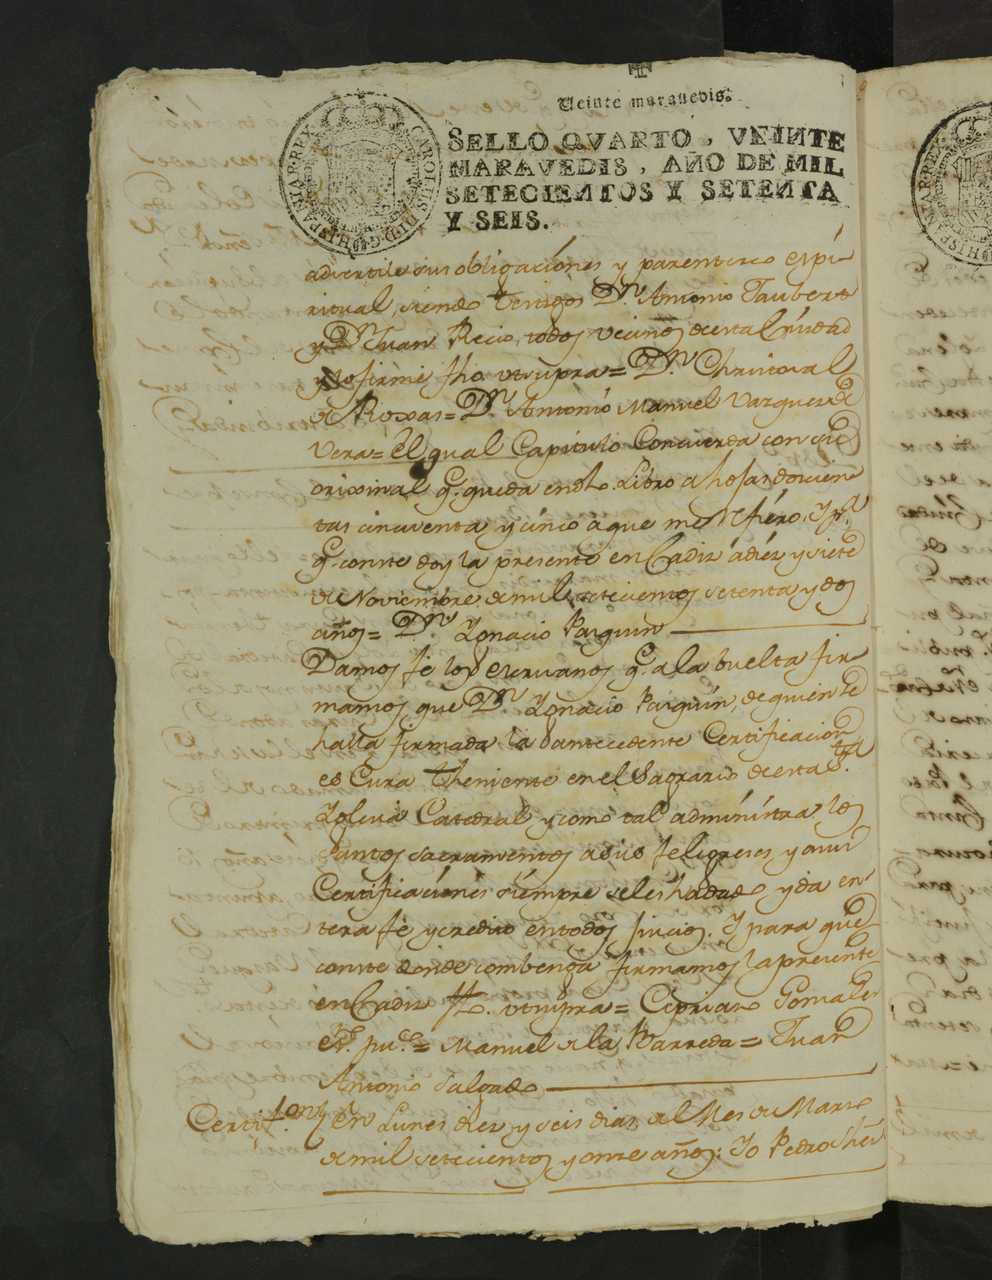 Veinte maravedis.
SELLO QVARTO, VEINTE
MARAVEDIS, AÑO DE MIL
SETECIENTOS Y SETENTA
Y SEIS.
CAROLUS III D. G. HISPANIAR REX
advertile sus obligaciónes y parentesco espi-
ritual, siendo testigos Dn. Antonio Taubert
y Dn. Juan Recio, todos vecinos de esta Ciudad
y lo firmé, fho. utsupra = Dn. Christoval
de Roxas = Dn. Antonio Manuel Vazquez de
Vera = el qual Capitulo Concuerda con su
orixinal q. queda en dho. Libro a hojas docien
tas cincuenta y cinco a que me refiero, Y pa.
q. conste doy la presente en Cadiz á diez y siete
de Noviembre de mil setecientos setenta y dos
años = Dn. Ignacio Parguin
Damos fe los escrivanos q. a la buelta fir-
mamos que Dn. Ignacio Parguin, de quien se
halla firmada la antecedente Certificacion
es Cura theniente en el Sagrario de esta Sta.
Iglesia Catedral y como tal administra los
Santos sacramentos a sus feligreses y a sus
Certificaciónes siempre se les ha dado y da en-
tera fe y credito en todos juicios. Y para que
conste donde combenga firmamos la presente
en Cadiz fho. utsupra = Cipriano Gonzalez
es.no pu.co = Manuel de la Barreda = Juan
Antonio Salgado
Certif.on En Lunes diez y seis dias del Mes de Marzo
de mil setecientos y onze años: Yo Pedro